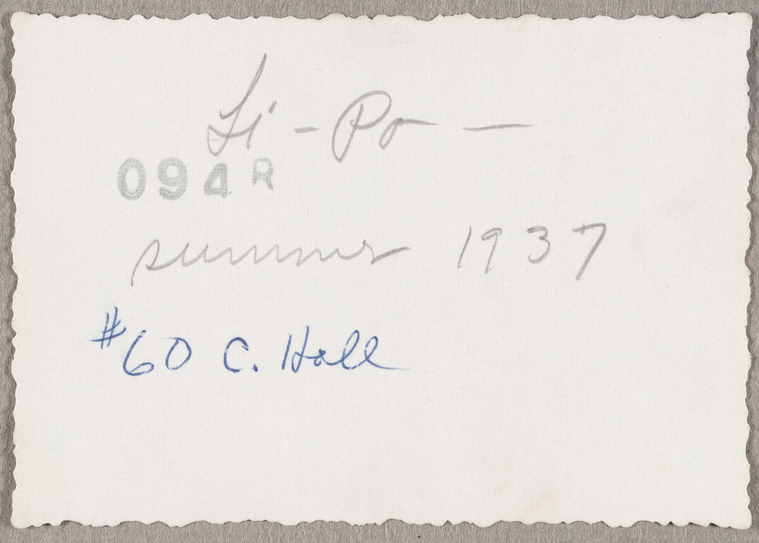 Li-Po —
094R
summer 1937
#60 C. Hall